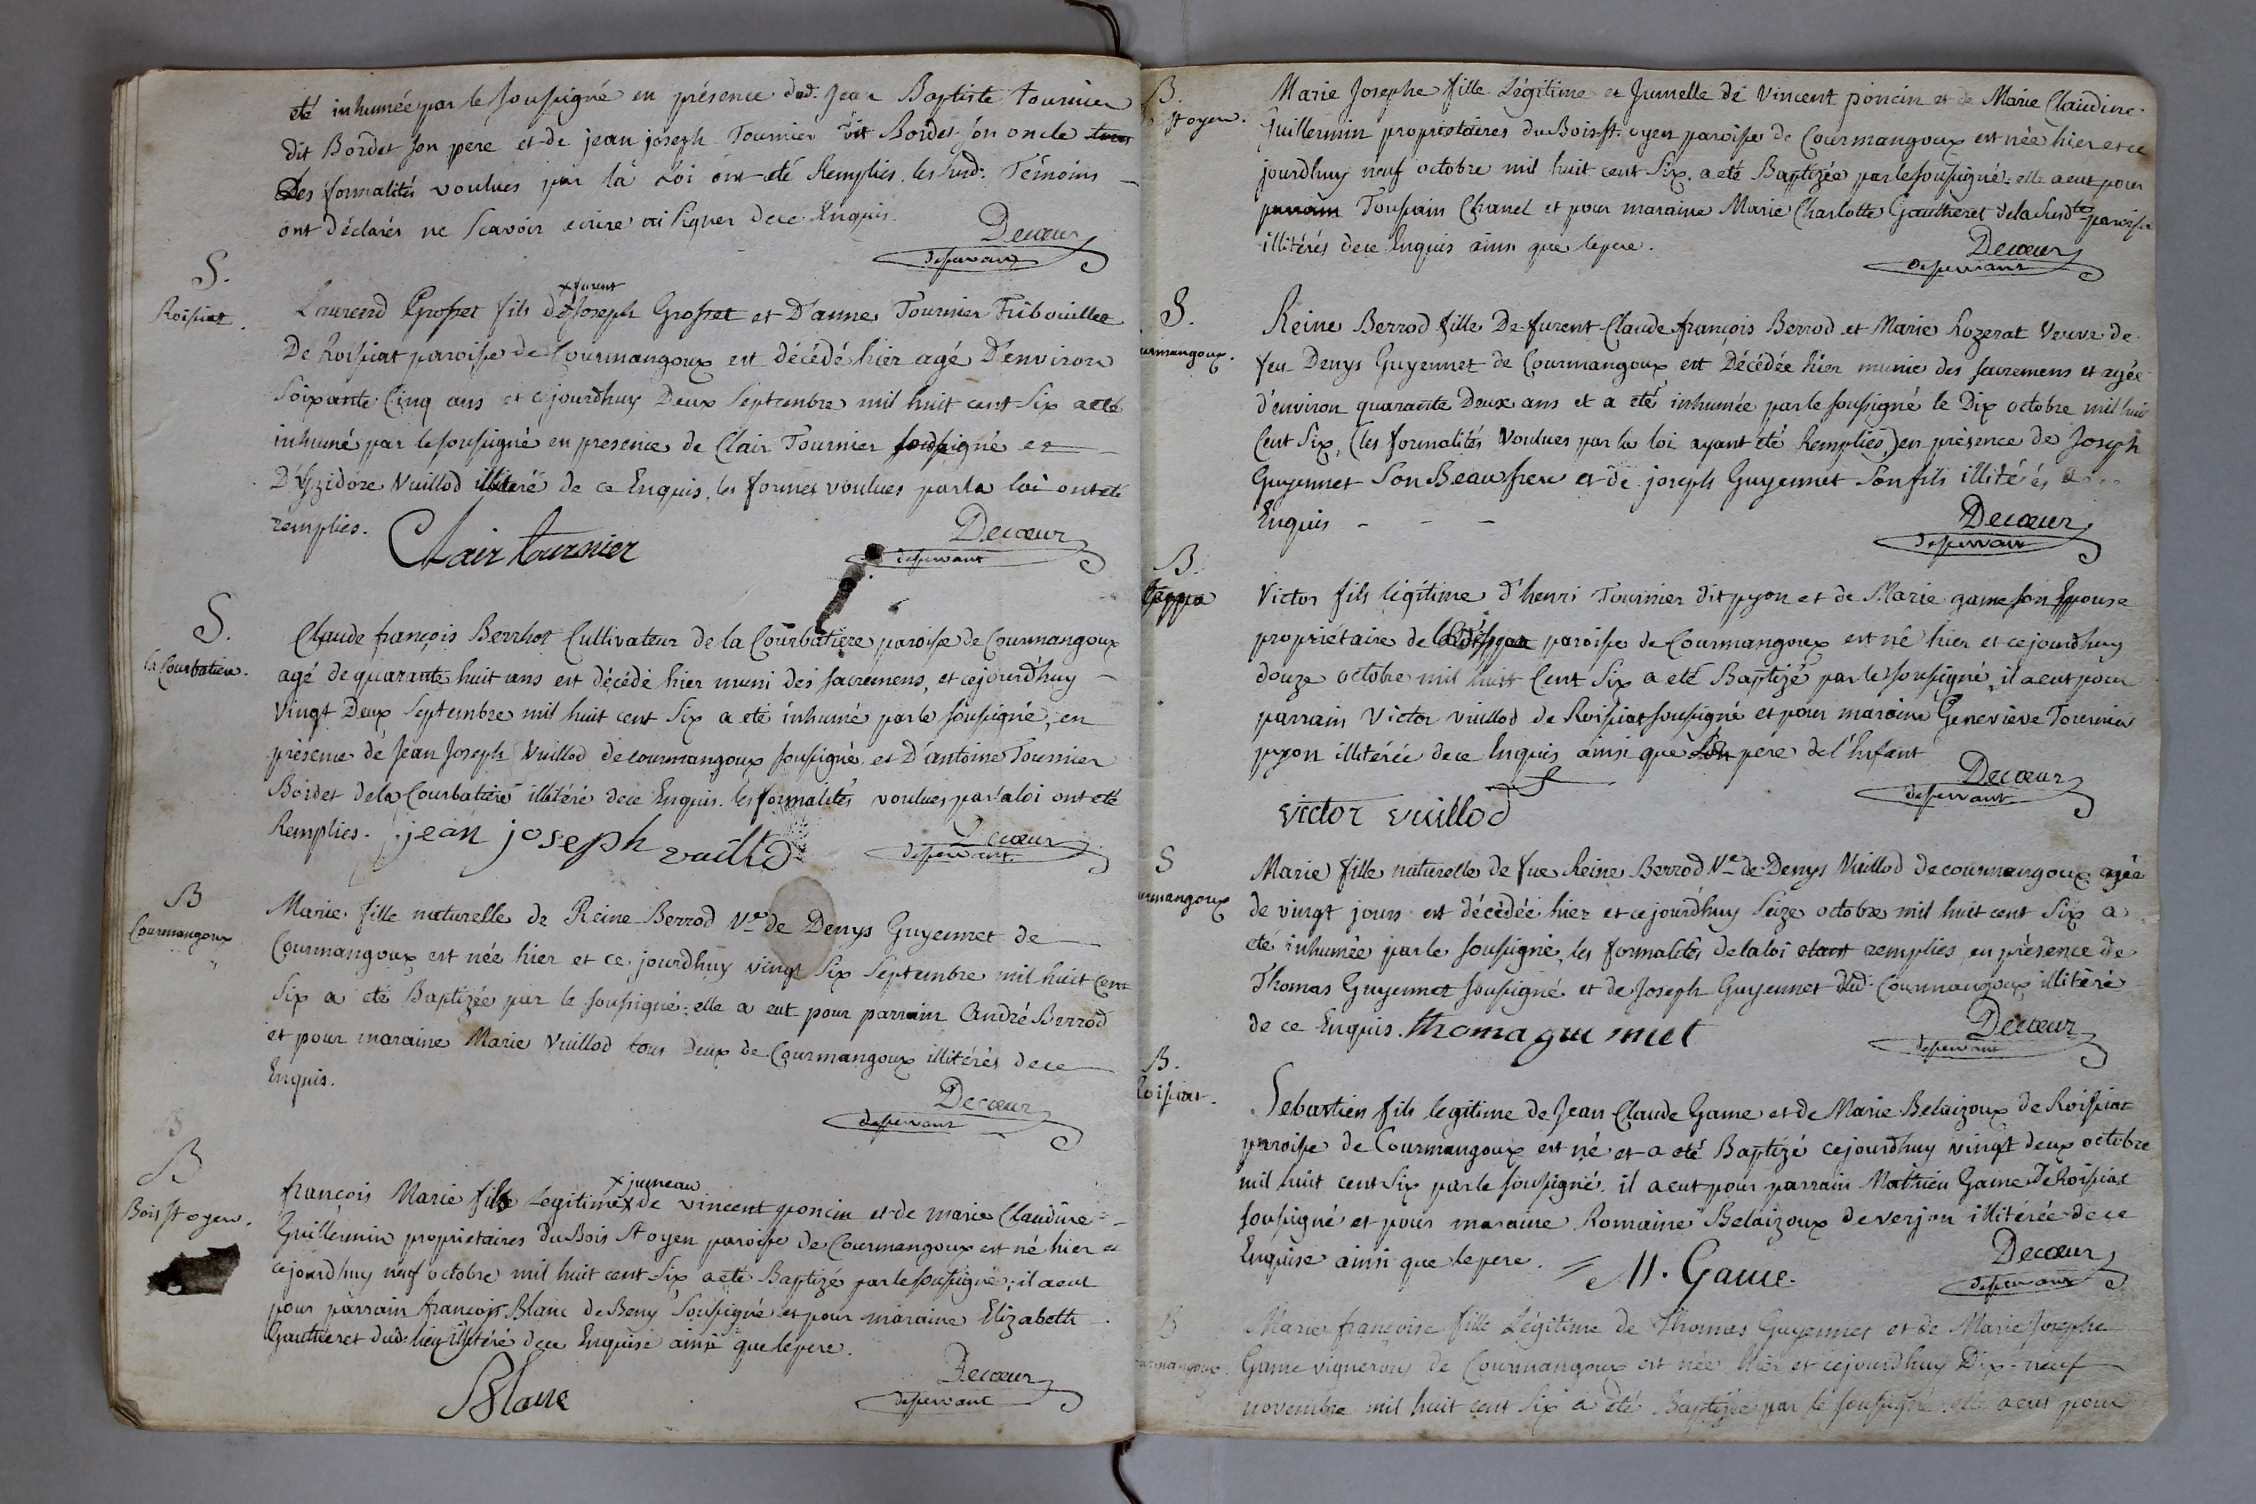 été inhumée par le soussigné en présence dud. Jean Baptiste tournier
dit Bordet son pere et de jean joseph Tournier dit Bordet son oncle
Les formalités voulues par la Loi ont été Remplies. les susd. Témoins
ont déclarés ne scavoir ecrire ni signer de ce Enquis.
Decœur
desservant
S.
Roissiat.
Laurend Grosset fils de Joseph Grosset et D'anne Tournier Tribouillet
x furent
De Roissiat paroisse de Courmangoux est décédé hier agé D'environ
Soixante Cinq ans et cejourdhuy Deux Septembre mil huit cent Six a eté
inhumé par le soussigné en presence de Clair Tournier soussigné et
D'Yzidore Vuillod illiteré de ce Enquis. les formes voulues par la loi ont eté
remplies.
Clair tournier
Decœur
desservant
S.
la Courbatiere.
Claude françois Berrhot Cultivateur de la Courbatiere paroisse de Courmangoux
agé de quarante huit ans est décédé hier muni des sacremens, et cejourd'huy
Vingt Deux Septembre mil huit cent Six a eté inhumé par le soussigné, en
présence de Jean Joseph Vuillod de courmangoux soussigné et D'antoine Tournier
Bordet de la Courbatiere illitéré de ce Enquis. les formalités voulues par la loi ont eté
Remplies.
jean joseph vuillod
Decœur
desservant
B
Courmangoux
Marie fille naturelle de Reine Berrod Ve de Denys Guyennet de
Courmangoux est née hier et ce jourdhuy vingt Six Septembre mil huit Cent
Six a eté Baptizée par le soussigné; elle a eut pour parrain André Berrod
et pour maraine Marie Vuillod tous Deux de Courmangoux illitérés de ce
Enquis.
Decœur
desservant
B
Bois st oyen.
x jumeau
françois Marie fils Legitime x de vincent poncin et de marie Claudine
Guillermin proprietaires du Bois St oyen paroisse de Courmangoux est né hier et
cejourdhuy neuf octobre mil huit cent Six a eté Baptizé par le soussigné; il a eut
pour parrain françois Blanc de Beny soussigné et pour maraine Elizabeth
Gautheret dud. lieu illitéré de ce Enquise ainsi que le pere.
Blanc
Decœur
desservant
B.
st oyen.
Marie Josephe fille Légitime et Jumelle de Vincent poncin et de Marie Claudine
Guillermin proprietaires du Bois-st-oyen paroisse de Courmangoux est née hier et ce
jourdhuy neuf octobre mil huit cent Six. a eté Baptizée par le soussigné. elle a eut pour
parrain Toussain Chanel et pour maraine Marie Charlotte Gautheret de la susdte paroisse
illitérés de ce Enquis ainsi que le pere.
Decœur
desservant
S.
urmangoux.
Reine Berrod fille De furent Claude françois Berrod et Marie Rozerat Veuve de
feu Denys Guyennet de Courmangoux est Décédée hier munie des sacremens et agée
d'environ quarante Deux ans et a eté inhumée par le soussigné le Dix octobre mil huit
Cent Six, (les formalités Voulues par la loi ayant eté Remplies,) en présence de Joseph
Guyennet Son Beaufrere et de joseph Guyennet son fils illitérés
Enquis - - -
Decœur
desservant
B.
Victor fils légitime d'henri Tournier dit pyon et de Marie game son Epouse
propriétaire de paroisse de Courmangoux est né hier et cejourdhuy
douze octobre mil huit Cent Six a eté Baptizé par le soussigné, il a eut pour
parrain Victor vuillod de Roissiat soussigné et pour maraine Genevieve Tournier
pyon illitérée de ce Enquis ainsi que pere de l'Enfant
victor vuillod
Decœur
desservant
S
urmangoux
Marie fille naturelle de fue Reine Berrod Ve de Denys Vuillod de courmangoux agée
de vingt jours est décédée hier et cejourd'huy Seize octobre mil huit cent Six a
eté inhumée par le soussigné, les formalités de la loi etant remplies en présence de
Thomas Guyennet soussigné et de Joseph Guyennet dud. Courmangoux illitéré
de ce Enquis.
thoma gui met
Decœur
desservant
B.
Roissiat.
Sebastien fils legitime de Jean Claude Game et de Marie Belaizoux de Roissiat
paroisse de Courmangoux est né et a eté Baptizé cejourdhuy vingt deux octobre
mil huit cent Six par le soussigné. il a eut pour parrain Mathieu Game De Roissiat
soussigné et pour maraine Romaine Belaizoux de verjon illitérée de ce
Enquise ainsi que le pere.
M. Game.
Decœur
desservant
B
urmangoux.
Marie françoise fille Légitime de Thomas Guyennet et de Marie Josephe
Game vignerons de Courmangoux est née hier et cejourdhuy Dix-neuf
novembre mil huit cent Six a eté Baptizée par le soussigné elle a eut pour